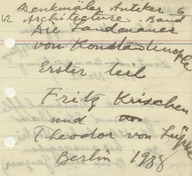 Denkmäler Antiker
Architektur Band 6
Die Landmauer
von Konstantinopel
Erster teil
Fritz Krischen
und
Theodor von Lüpke
Berlin 1938